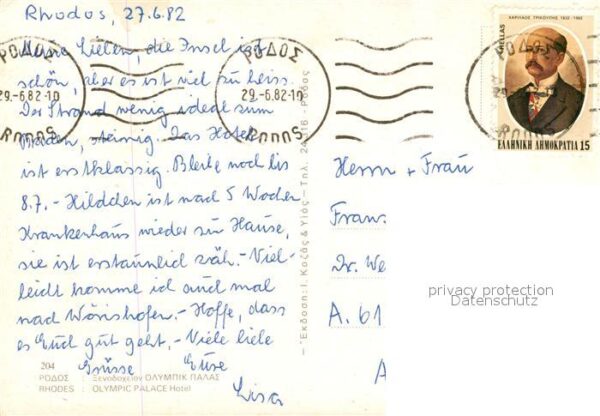 Rhodos, 27.6.82
Meine Lieben, die Insel ist
schön, aber es ist viel zu heiss.
Der Strand wenig ideal zum
Baden, steinig. Das Hotel
ist erstklassig. Bleibe noch bis
8.7. - Hildchen ist nach 5 Wochen
Krankenhaus wieder zu Hause,
sie ist erstaunlich zäh. - Viel-
leicht komme ich auch mal
nach Wörishofen. - Hoffe, dass
es Euch gut geht. - Viele liebe
Grüsse Eure
Lisa
204
ΡΟΔΟΣ : Ξενοδοχείον ΟΛΥΜΠΙΚ ΠΑΛΑΣ
RHODES : OLYMPIC PALACE Hotel
— Έκδοση: Ι. Κοζάς & Υιός — Τηλ. 24 116 - Ρόδος
ΡΟΔΟΣ
29.-6.82-10
RODOS
ΡΟΔΟΣ
29.-6.82-10
RODOS
ΡΟΔΟΣ
RODOS
HELLAS
ΧΑΡΙΛΑΟΣ ΤΡΙΚΟΥΠΗΣ 1832-1982
ΕΛΛΗΝΙΚΗ ΔΗΜΟΚΡΑΤΙΑ 15
Herrn + Frau
Franz
Dr. We
A. 61
A
privacy protection
Datenschutz